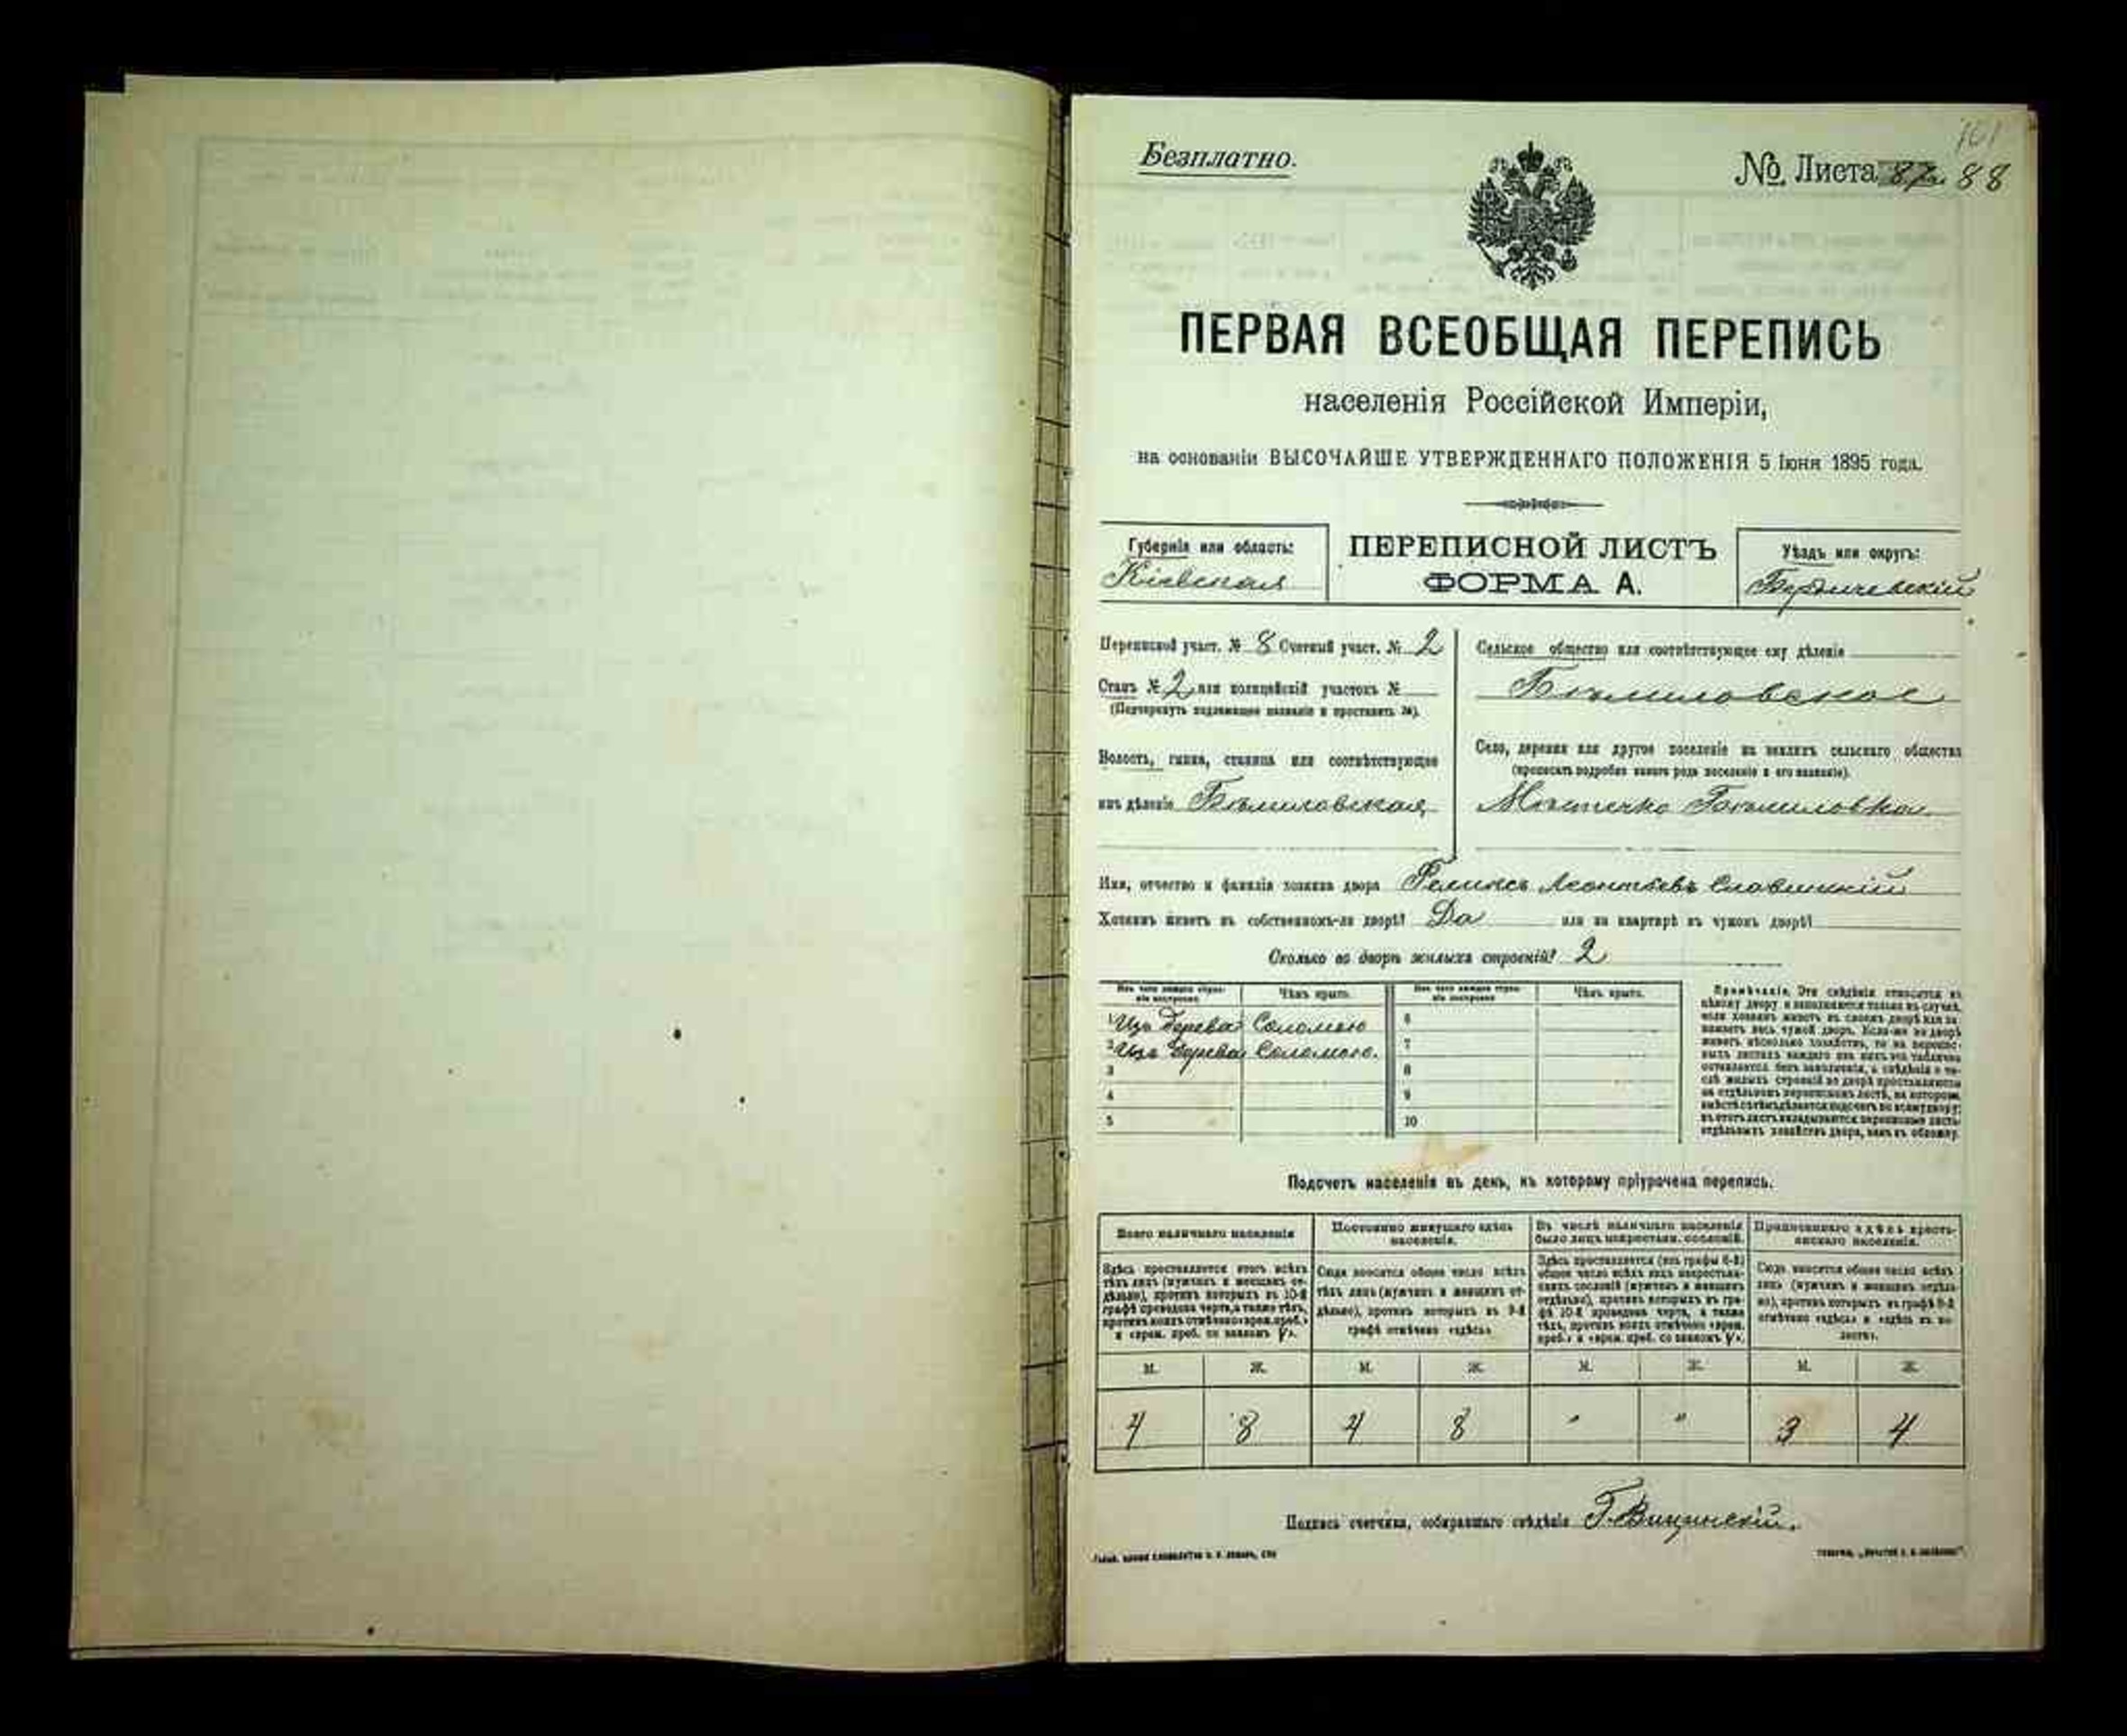 161
Безплатно.
№ Листа 87а. 88
ПЕРВАЯ ВСЕОБЩАЯ ПЕРЕПИСЬ
населенія Россійской Имперіи,
на основаніи ВЫСОЧАЙШЕ УТВЕРЖДЕННАГО ПОЛОЖЕНІЯ 5 Іюня 1895 года.
Губернія или область:
Кіевская
ПЕРЕПИСНОЙ ЛИСТЪ
ФОРМА А.
Уѣздъ или округъ:
Бердичевскій
Переписной участ. № 8 Счетный участ. № 2
Станъ № 2 или полицейскій участокъ №
(Подчеркнуть подлежащее названіе и проставить №).
Волость, гмина, станица или соотвѣтствующее
имъ дѣленіе Бѣлиловская,
Сельское общество или соотвѣтствующее ему дѣленіе
Бѣлиловское
Село, деревня или другое поселеніе на земляхъ сельскаго общества
(прописать подробно какого рода поселеніе и его названіе).
Мѣстечко Бѣлиловка.
Имя, отчество и фамилія хозяина двора Феликсъ Леонтьевъ Славицкій
Хозяинъ живетъ въ собственномъ-ли дворѣ? Да или на квартирѣ въ чужомъ дворѣ?
Сколько во дворѣ жилыхъ строеній? 2
Изъ чего каждое строеніе построено Чѣмъ крыто. Изъ чего каждое строеніе построено Чѣмъ крыто.
1 Изъ дерева Соломою 6
2 Изъ дерева Соломою. 7
3 8
4 9
5 10
Примѣчаніе. Эти свѣдѣнія относятся къ
цѣлому двору и заполняются только въ случаѣ,
если хозяинъ живетъ въ своемъ дворѣ или занимаетъ весь чужой дворъ. Если-же во дворѣ
живетъ нѣсколько хозяйствъ, то на переписныхъ листахъ каждаго изъ нихъ эта табличка
оставляется безъ заполненія, а свѣдѣнія о числѣ жилыхъ строеній во дворѣ проставляются
на отдѣльномъ переписномъ листѣ, на которомъ
вмѣстѣ съ тѣмъ дѣлается подсчетъ по всему двору;
въ этотъ листъ вкладываются переписные листы
отдѣльныхъ хозяйствъ двора, какъ въ обложку.
Подсчетъ населенія въ день, къ которому пріурочена перепись.
Всего наличнаго населенія
Постоянно живущаго здѣсь населенія.
Въ числѣ наличнаго населенія было лицъ некрестьян. сословій.
Приписаннаго здѣсь крестьянскаго населенія.
Здѣсь проставляется итогъ всѣхъ
тѣхъ лицъ (мужчинъ и женщинъ отдѣльно), противъ которыхъ въ 10-й
графѣ проведена черта, а также тѣхъ,
противъ коихъ отмѣчено «врем. преб.»
и «врем. преб. со знакомъ V».
Сюда вносится общее число всѣхъ
тѣхъ лицъ (мужчинъ и женщинъ отдѣльно), противъ которыхъ въ 9-й
графѣ отмѣчено «здѣсь»
Здѣсь проставляется (изъ графы 6-й)
общее число всѣхъ лицъ некрестьянскихъ сословій (мужчинъ и женщинъ
отдѣльно), противъ которыхъ въ графѣ 10-й проведена черта, а также
тѣхъ, противъ коихъ отмѣчено «врем.
преб.» и «врем. преб. со знакомъ V».
Сюда вносится общее число всѣхъ
лицъ (мужчинъ и женщинъ отдѣльно), противъ которыхъ въ графѣ 8-й
отмѣчено «здѣсь» и «здѣсь въ волости».
М. Ж. М. Ж. М. Ж. М. Ж.
4 8 4 8 " " 3 4
Подпись счетчика, собиравшаго свѣдѣнія Г. Вицинскій.